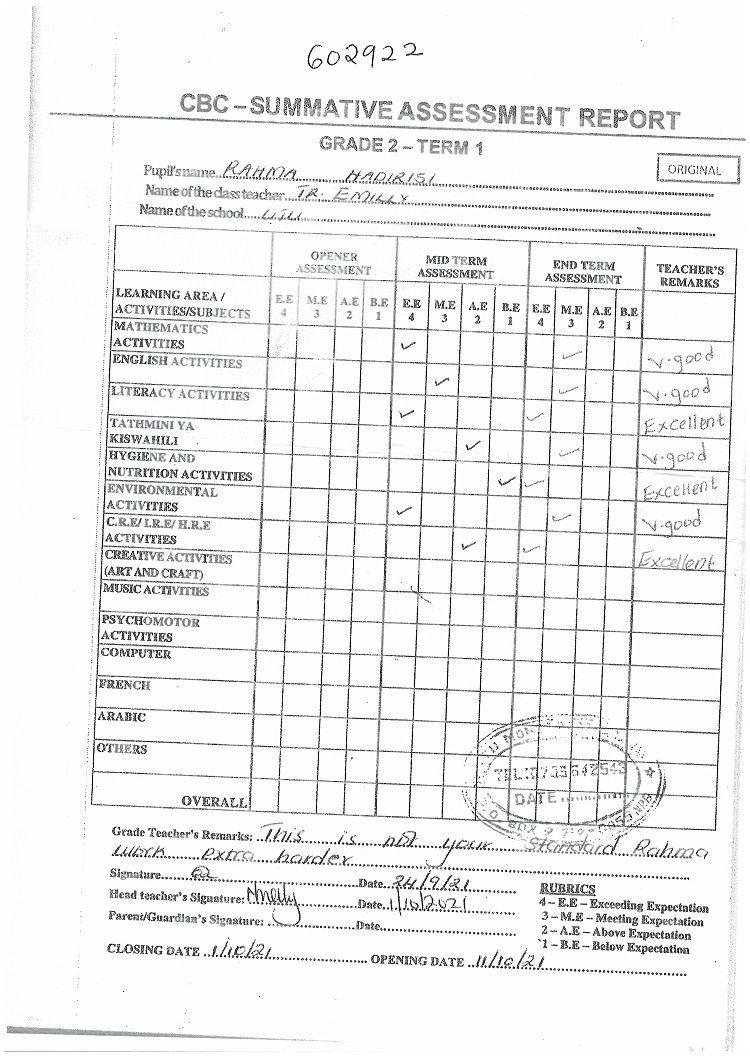 602922
CBC – SUMMATIVE ASSESSMENT REPORT
GRADE 2 – TERM 1
ORIGINAL
Pupil's name RAHMA HADIRISI
Name of the class teacher TR. EMILLY
Name of the school
OPENER ASSESSMENT MID TERM ASSESSMENT END TERM ASSESSMENT TEACHER'S REMARKS
LEARNING AREA / ACTIVITIES/SUBJECTS E.E 4 M.E 3 A.E 2 B.E 1 E.E 4 M.E 3 A.E 2 B.E 1 E.E 4 M.E 3 A.E 2 B.E 1
MATHEMATICS ACTIVITIES ✓ ✓ V.good
ENGLISH ACTIVITIES ✓ ✓ V.good
LITERACY ACTIVITIES ✓ ✓ Excellent
TATHMINI YA KISWAHILI ✓ ✓ V.good
HYGIENE AND NUTRITION ACTIVITIES ✓ ✓ Excellent
ENVIRONMENTAL ACTIVITIES ✓ ✓ V.good
C.R.E/ I.R.E/ H.R.E ACTIVITIES ✓ ✓ Excellent
CREATIVE ACTIVITIES (ART AND CRAFT)
MUSIC ACTIVITIES
PSYCHOMOTOR ACTIVITIES
COMPUTER
FRENCH
ARABIC
OTHERS
OVERALL
DATE
Grade Teacher's Remarks: This is not your standard Rahma
work extra harder
Signature Date 24/9/21
Head teacher's Signature: Date 1/10/2021
Parent/Guardian's Signature: Date
CLOSING DATE 1/10/21 OPENING DATE 11/10/21
RUBRICS
4 – E.E – Exceeding Expectation
3 – M.E – Meeting Expectation
2 – A.E – Above Expectation
1 – B.E – Below Expectation